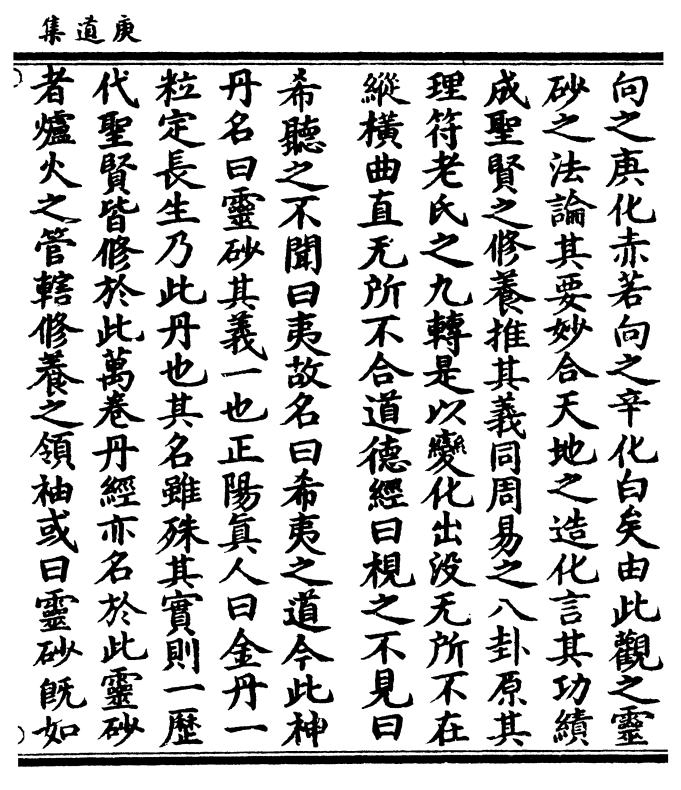 庚道集
向之庚化赤若向之辛化白矣由此觀之靈
砂之法論其要妙合天地之造化言其功績
成聖賢之修養推其義同周易之八卦原其
理符老氏之九轉是以變化出没无所不在
縱橫曲直无所不合道德經曰視之不見曰
希聽之不聞曰夷故名曰希夷之道今此神
丹名曰靈砂其義一也正陽真人曰金丹一
粒定長生乃此丹也其名雖殊其實則一歷
代聖賢皆修於此萬卷丹經亦名於此靈砂
者爐火之管轄修養之領袖或曰靈砂旣如